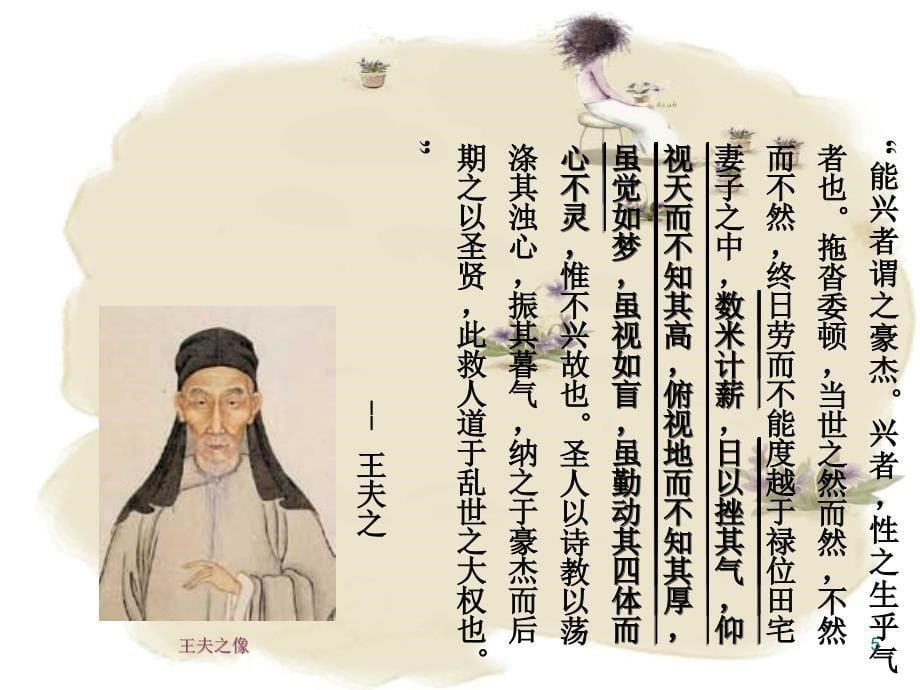 “能兴者谓之豪杰。兴者,性之生乎气
者也。拖沓委顿,当世之然而然,不然
而不然,终日劳而不能度越于禄位田宅
妻子之中,数米计薪,日以挫其气,仰
视天而不知其高,俯视地而不知其厚,
虽觉如梦,虽视如盲,虽勤动其四体而
心不灵,惟不兴故也。圣人以诗教以荡
涤其浊心,振其暮气,纳之于豪杰而后
期之以圣贤,此救人道于乱世之大权也。
”
-- 王夫之
王夫之像
5